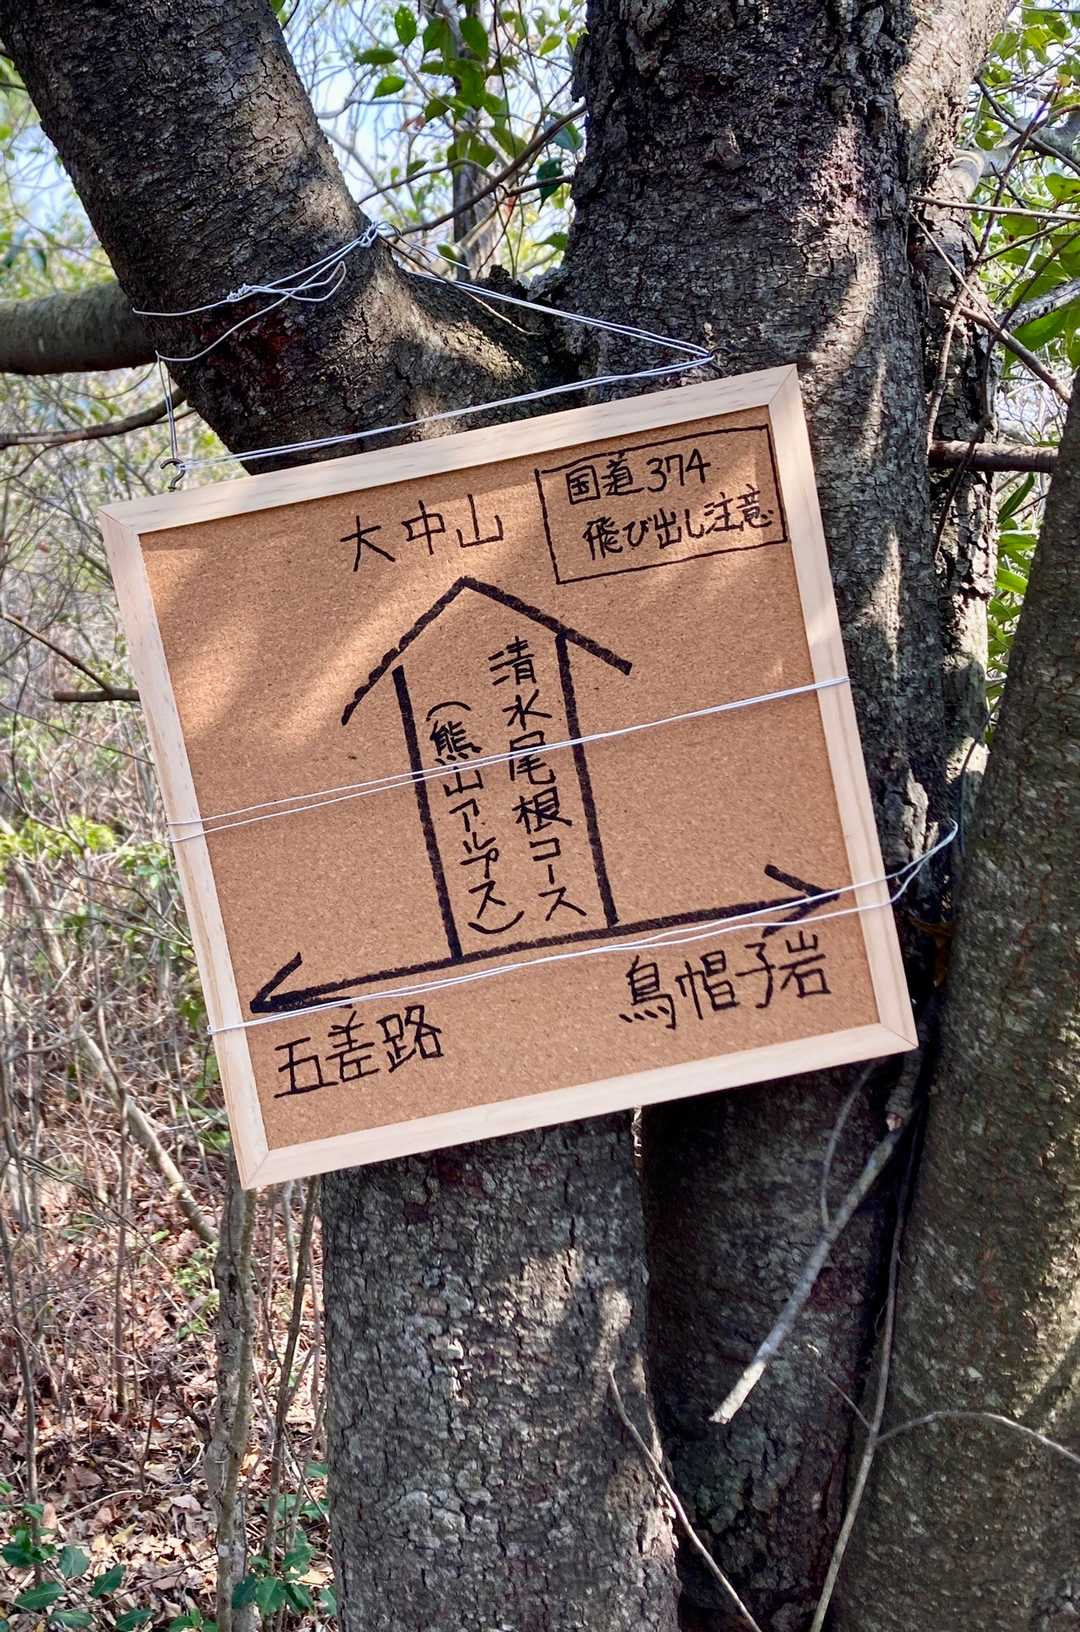 国道374
飛び出し注意
大中山
清水尾根コース
(熊山アルプス)
五差路
烏帽子岩